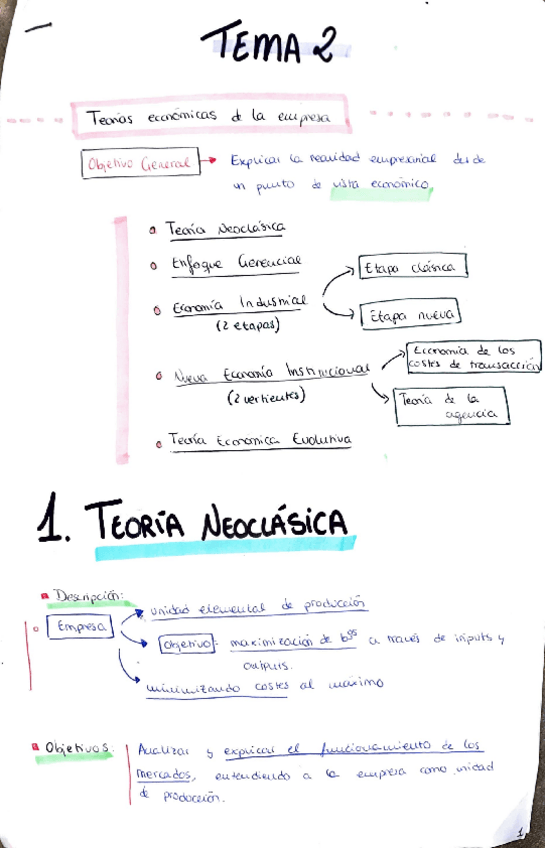 TEMA 2
Teorías económicas de la empresa
Objetivo General → Explicar la realidad empresarial desde
un punto de vista económico.
Teoría Neoclásica
Enfoque Gerencial
Etapa clásica
Economía Industrial
(2 etapas)
Etapa nueva
Economía de los
costes de transacción
Nueva Economía Institucional
(2 vertientes)
Teoría de la
agencia
Teoría Economica Evolutiva
1. TEORÍA NEOCLÁSICA
Descripción:
unidad elemental de producción
Empresa
Objetivo: maximización de bºs a través de inputs y
outputs.
minimizando costes al máximo
Objetivos: Analizar y explicar el funcionamiento de los
mercados, entendiendo a la empresa como unidad
de producción.
1